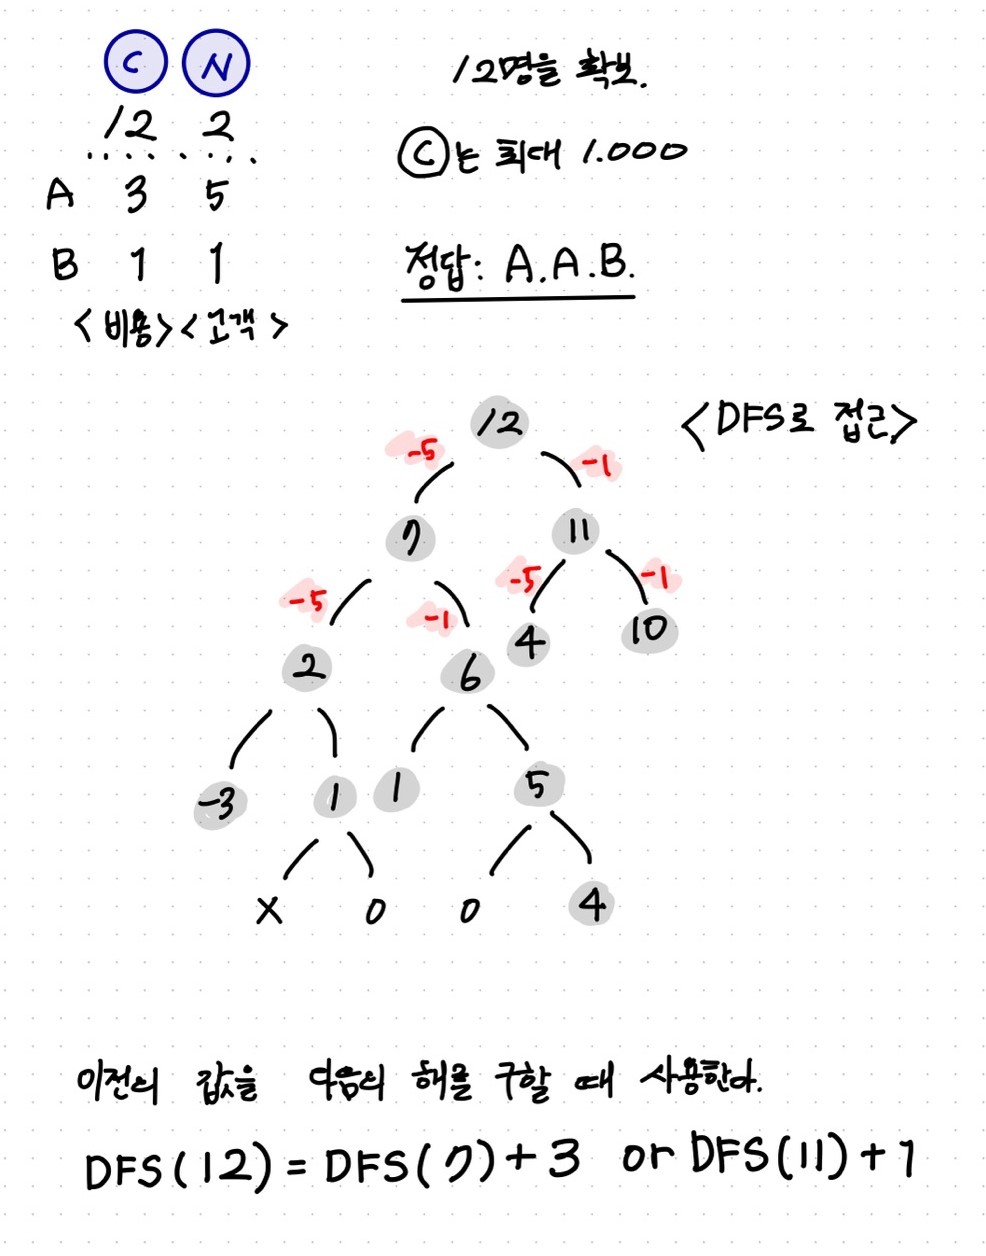 C N
12 2
A 3 5
B 1 1
<비용> <고객>
12명을 확보.
C는 최대 1.000
정답: A.A.B.
<DFS로 접근>
12
-5 -1
7 11
-5 -1 -5 -1
2 6 4 10
-3 1 1 5
X 0 0 4
이전의 값을 다음의 해를 구할 때 사용한다.
DFS(12) = DFS(7)+3 or DFS(11)+1